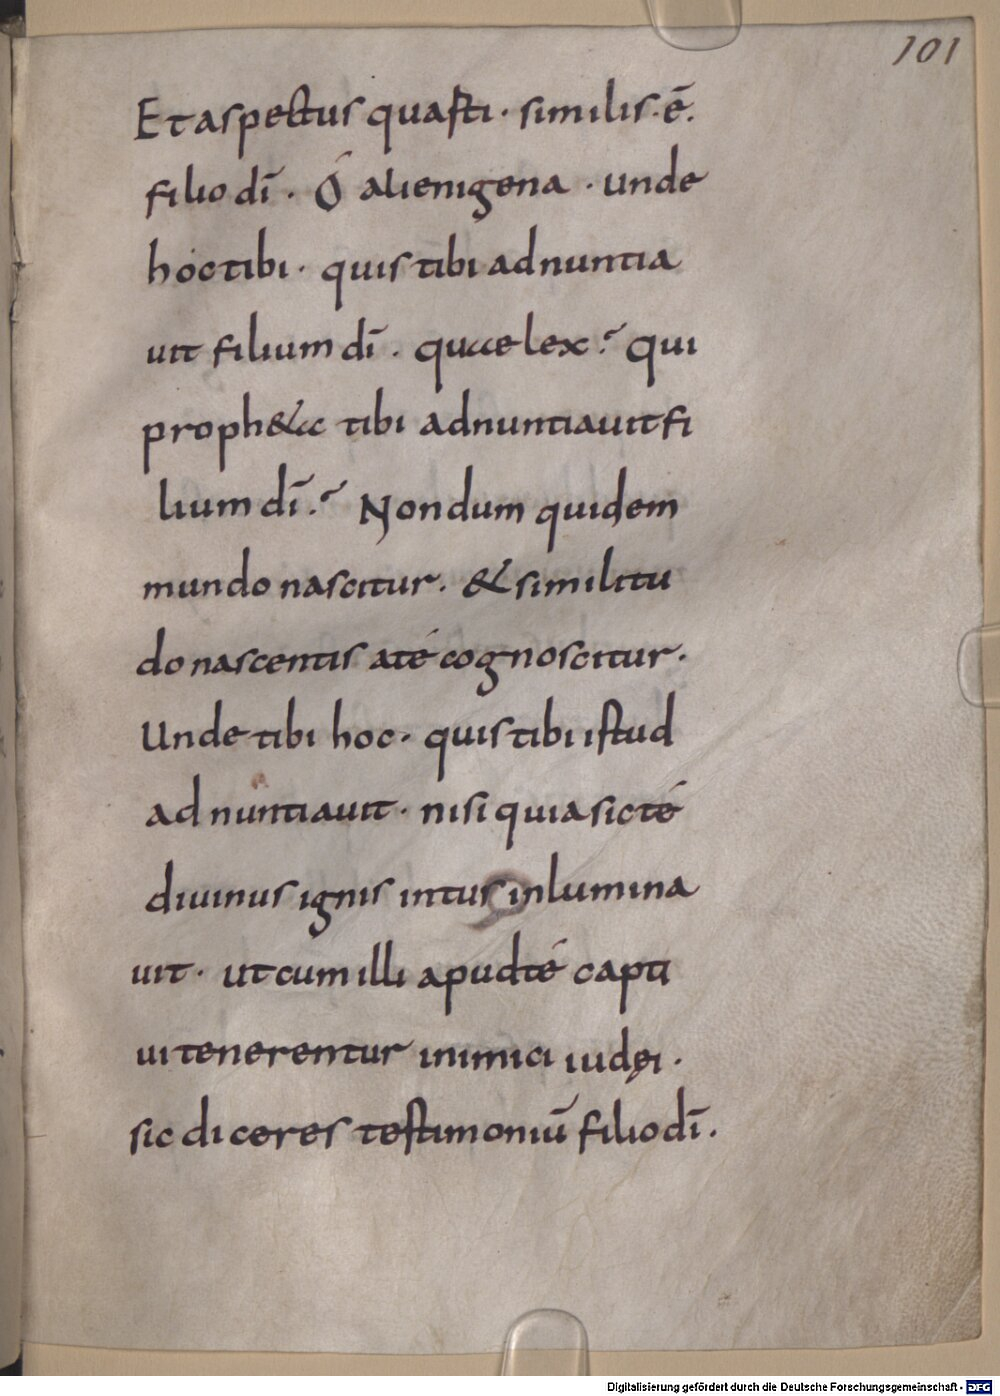 101
Et aspectus quasti · similis · ē.
filio dī · Ó alienigena · unde
hoc tibi · quis tibi adnuntia
uit filium dī . quae lex? qui
proph&ae tibi adnuntiauit fi
lium dī? Nondum quidem
mundo nascitur. & similitu
do nascentis até cognoscitur.
Unde tibi hoc · quis tibi istud
adnuntiauit · nisi quia sic té
diuinus ignis intus inlumina
uit · ut cum illi apud té capti
ui tenerentur inimici iudęi ·
sic diceres testimoniū filio dī .
Digitalisierung gefördert durch die Deutsche Forschungsgemeinschaft - DFG